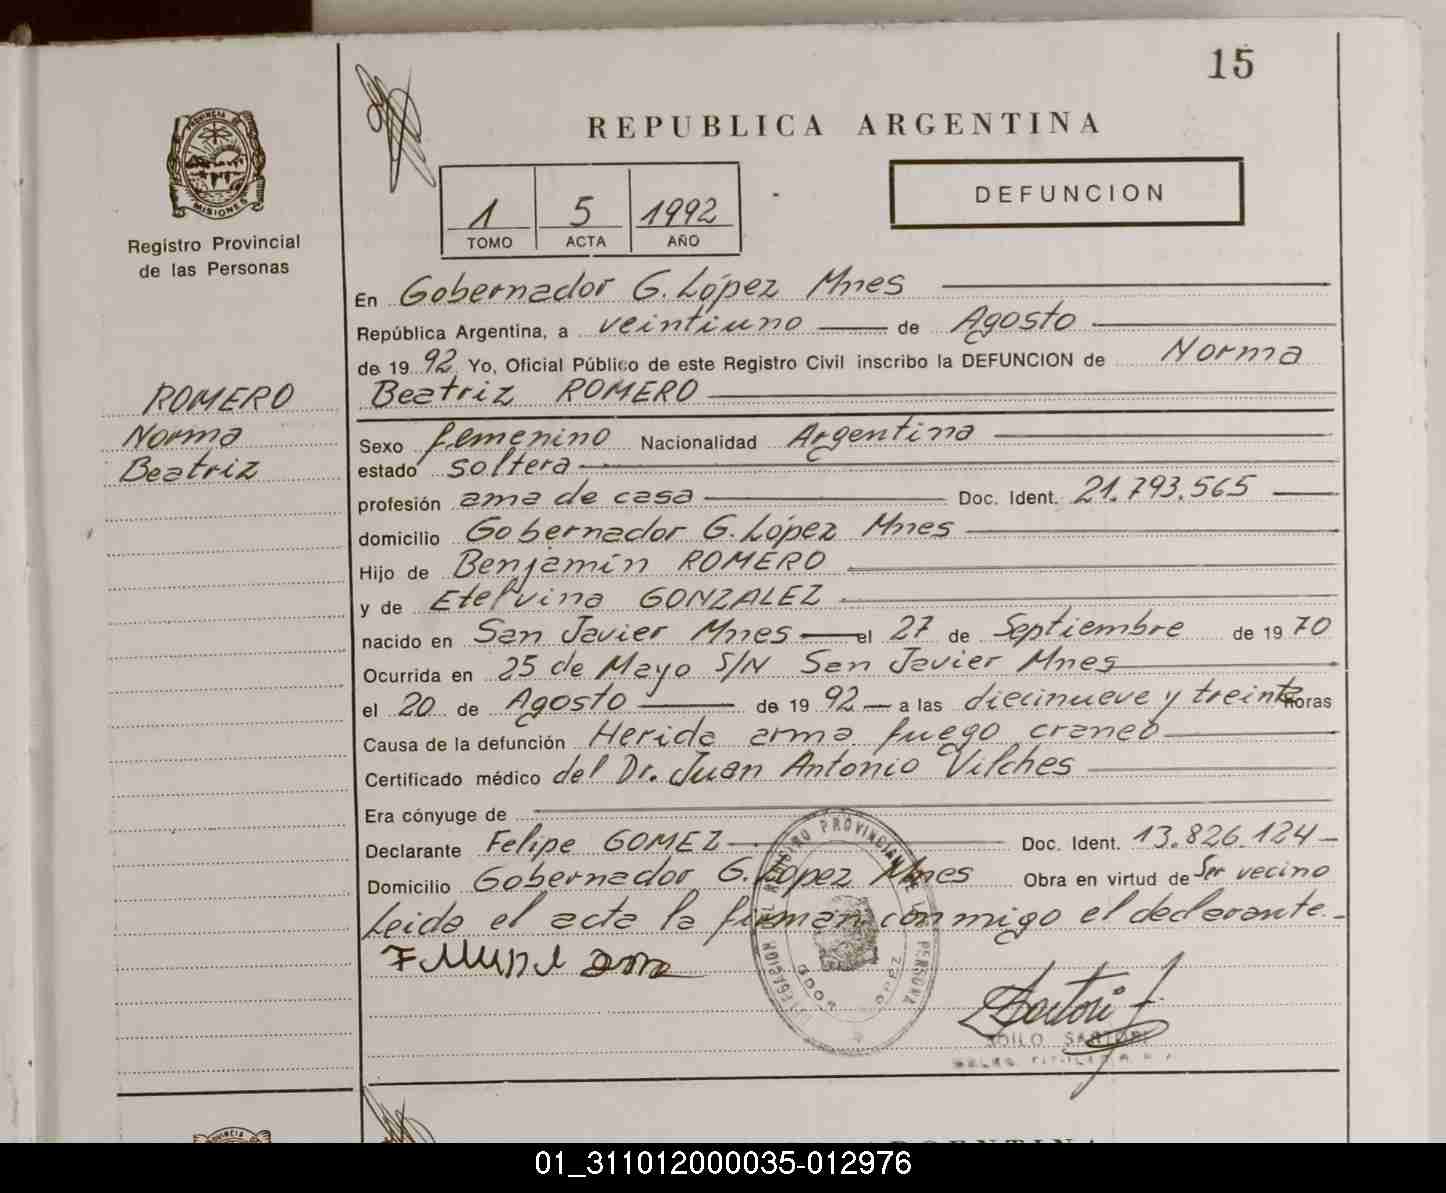 15
REPUBLICA ARGENTINA
1 5 1992
TOMO ACTA AÑO
DEFUNCION
PROVINCIA DE
MISIONES
Registro Provincial
de las Personas
En Gobernador G. López Mnes
República Argentina, a veintiuno de Agosto
de 1992 Yo, Oficial Público de este Registro Civil inscribo la DEFUNCION de Norma
Beatriz ROMERO
ROMERO
Norma
Beatriz
Sexo femenino Nacionalidad Argentina
estado soltera
profesión ama de casa Doc. Ident. 21.793.565
domicilio Gobernador G. López Mnes
Hijo de Benjamín ROMERO
y de Etelvina GONZALEZ
nacido en San Javier Mnes el 27 de Septiembre de 1970
Ocurrida en 25 de Mayo S/N San Javier Mnes
el 20 de Agosto de 1992 a las diecinueve y treinta horas
Causa de la defunción Herida arma fuego craneo
Certificado médico del Dr. Juan Antonio Vilches
Era cónyuge de
Declarante Felipe GOMEZ Doc. Ident. 13.826.124
Domicilio Gobernador G. López Mnes Obra en virtud de Ser vecino
Leida el acta la firman conmigo el declarante.
REGISTRO PROVINCIAL DE LAS PERSONAS
GDOR LOPEZ
Sartori
SARTORI
REPUBLICA ARGENTINA
01_311012000035-012976